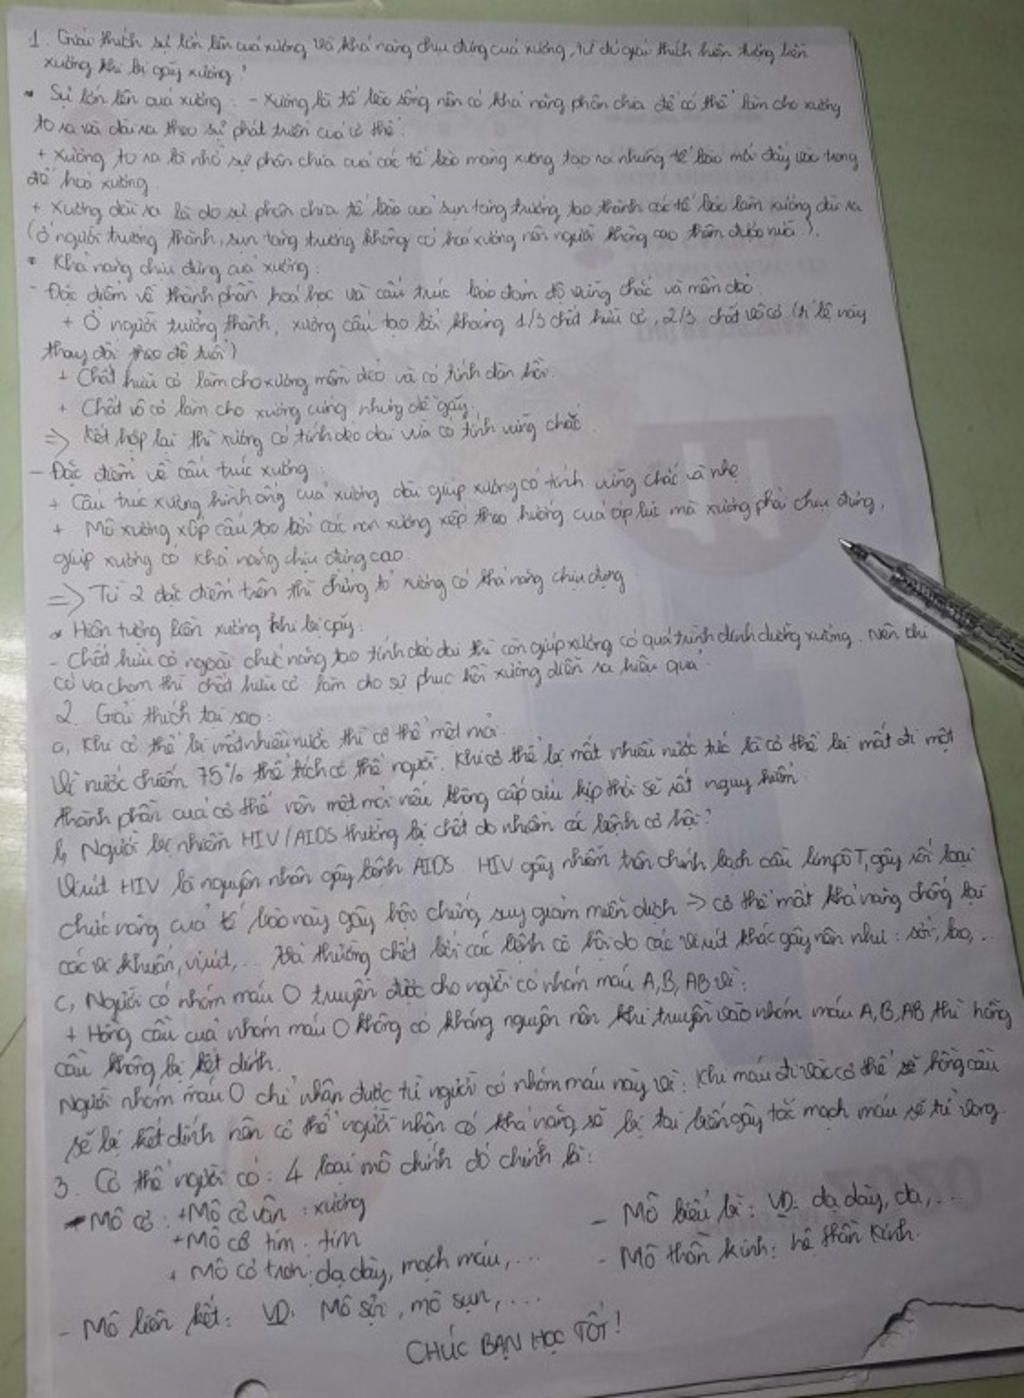 1. Giải thích sự lớn lên của xương và khả năng chịu đựng của xương, từ đó giải thích hiện tượng liền
xương khi bị gãy xương?
* Sự lớn lên của xương: - Xương là tế bào sống nên có khả năng phân chia để có thể làm cho xương
to ra và dài ra theo sự phát triển của cơ thể.
+ Xương to ra là nhờ sự phân chia của các tế bào màng xương tạo ra những tế bào mới đẩy vào trong
để hoá xương.
+ Xương dài ra là do sự phân chia tế bào của sụn tăng trưởng tạo thành các tế bào làm xương dài ra
(ở người trưởng thành, sụn tăng trưởng không có hoá xương nên người không cao thêm được nữa).
* Khả năng chịu đựng của xương:
- Đặc điểm về thành phần hoá học và cấu trúc bảo đảm độ vững chắc và mềm dẻo.
+ Ở người trưởng thành, xương cấu tạo bởi khoảng 1/3 chất hữu cơ, 2/3 chất vô cơ (tỉ lệ này
thay đổi theo độ tuổi)
+ Chất hữu cơ làm cho xương mềm dẻo và có tính đàn hồi.
+ Chất vô cơ làm cho xương cứng nhưng dễ gãy.
=> Kết hợp lại thì xương có tính dẻo dai vừa có tính vững chắc.
- Đặc điểm về cấu trúc xương:
+ Cấu trúc xương hình ống của xương dài giúp xương có tính vững chắc và nhẹ
+ Mô xương xốp cấu tạo bởi các nan xương xếp theo hướng của áp lực mà xương phải chịu đựng,
giúp xương có khả năng chịu đựng cao.
=> Từ 2 đặc điểm trên thì chứng tỏ xương có khả năng chịu đựng
* Hiện tượng liền xương khi bị gãy:
- Chất hữu cơ ngoài chức năng tạo tính dẻo dai thì còn giúp xương có quá trình dinh dưỡng xương. Nên khi
có va chạm thì chất hữu cơ làm cho sự phục hồi xương diễn ra hiệu quả.
2. Giải thích tại sao:
a, Khi cơ thể bị mất nhiều nước thì cơ thể mệt mỏi.
Vì nước chiếm 75% thể tích cơ thể người. Khi cơ thể bị mất nhiều nước tức là cơ thể bị mất đi một
thành phần của cơ thể nên mệt mỏi nếu không cấp cứu kịp thời sẽ rất nguy hiểm.
b, Người bị nhiễm HIV/AIDS thường bị chết do nhiễm các bệnh cơ hội?
Virút HIV là nguyên nhân gây bệnh AIDS. HIV gây nhiễm trên chính bạch cầu limpô T, gây rối loại
chức năng của tế bào này gây hội chứng suy giảm miễn dịch => cơ thể mất khả năng chống lại
các vi khuẩn, virút,... Và thường chết bởi các bệnh cơ hội do các virút khác gây nên như: sởi, lao,...
c, Người có nhóm máu O truyền được cho người có nhóm máu A, B, AB vì:
+ Hồng cầu của nhóm máu O không có kháng nguyên nên khi truyền vào nhóm máu A, B, AB thì hồng
cầu không bị kết dính.
Người nhóm máu O chỉ nhận được từ người có nhóm máu này vì: Khi máu đi vào cơ thể hồng cầu
sẽ bị kết dính nên cơ thể người nhận có khả năng sẽ bị tai biến gây tắc mạch máu sẽ tử vong.
3. Cơ thể người có: 4 loại mô chính đó chính là:
- Mô cơ: + Mô cơ vân: xương
+ Mô cơ tim: tim
+ Mô cơ trơn: dạ dày, mạch máu,...
- Mô liên kết: VD: Mô sợi, mô sụn,...
- Mô biểu bì: VD: dạ dày, da,...
- Mô thần kinh: hệ thần kinh.
CHÚC BẠN HỌC TỐT!